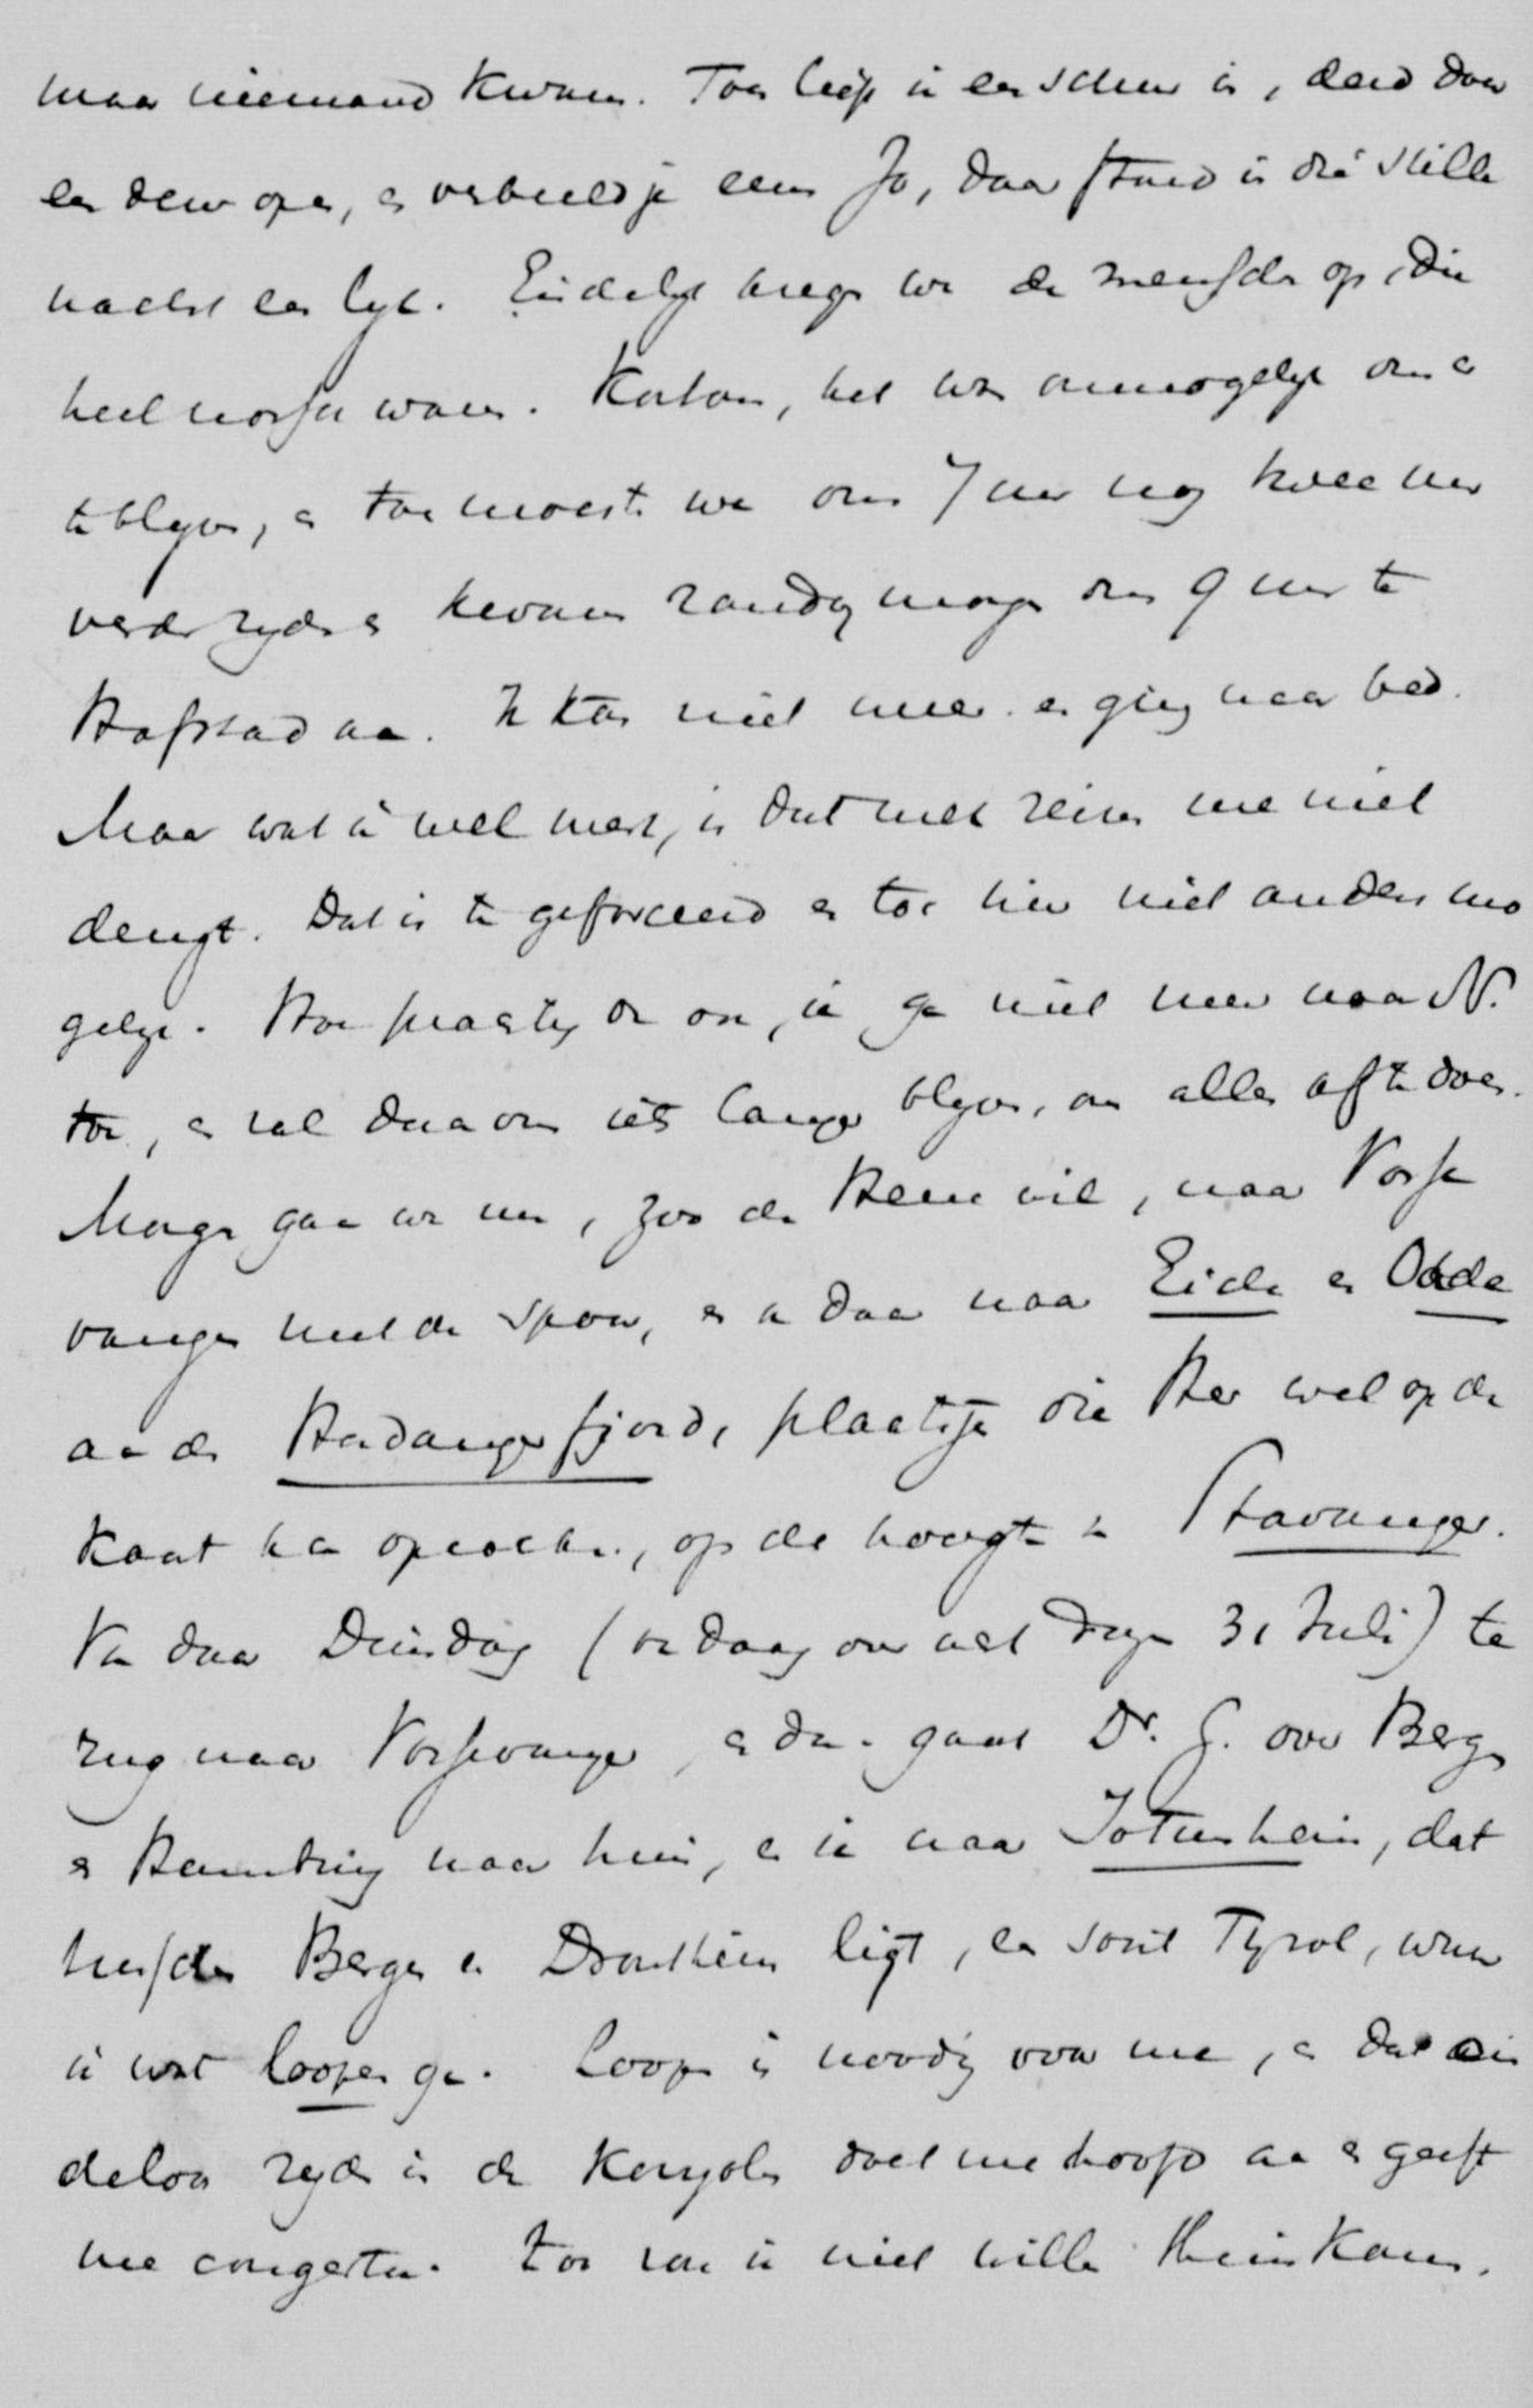 maar niemand kwam. Toen liep ik een schuur in, deed daar
een deur open, en verbeeld je eens Jo, daar stond in die stille
nacht een lyk. Eindelyk kregen we de menschen op, die
heel norsch waren. Kortom, het was onmogelyk om er
te blyven, en toen moesten we om 7 uur nog twee uur
verder ryden en kwamen zondag morgen om 9 uur te
Hofstad aan. Ik kon niet meer en ging naar bed.
Maar wat ik wel merk, is dat met reizen me niet
deugt. Dat is te geforceerd en toch hier niet anders mo
gelyk. Hoe prachtig ook, ik ga niet meer naar N.
toe, en zal daarom iets langer blyven, om alles af te doen.
Morgen gaan we nu, zoo de Heere wil, naar Vosse
vangen met de spoor, en van daar naar Eide en Odde
aan de Hardanger fjord, plaatsjes die Her wel op de
kaart kan opzoeken, op de hoogte van Stavanger.
Van daar Dinsdag (vandaag over acht dagen 31 Juli) te
rug naar Vossevangen, en dan gaat Dr. G. over Bergen
en Hamburg naar huis, en ik naar Jotunheim, dat
tusschen Bergen en Drontheim ligt, een soort Tyrol, waar
ik wat loopen ga. Loopen is noodig voor me, en dat ein
deloos ryden in de Karyolen doet me hoofd aan en geeft
me congestie. Zoo zou ik niet willen thuis komen.